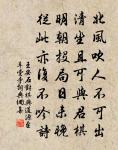 北風吹人不可出
清坐且可與君棋
明朝投局日未晚
從此亦復不吟詩
王安石對棋與道源至
草堂寺